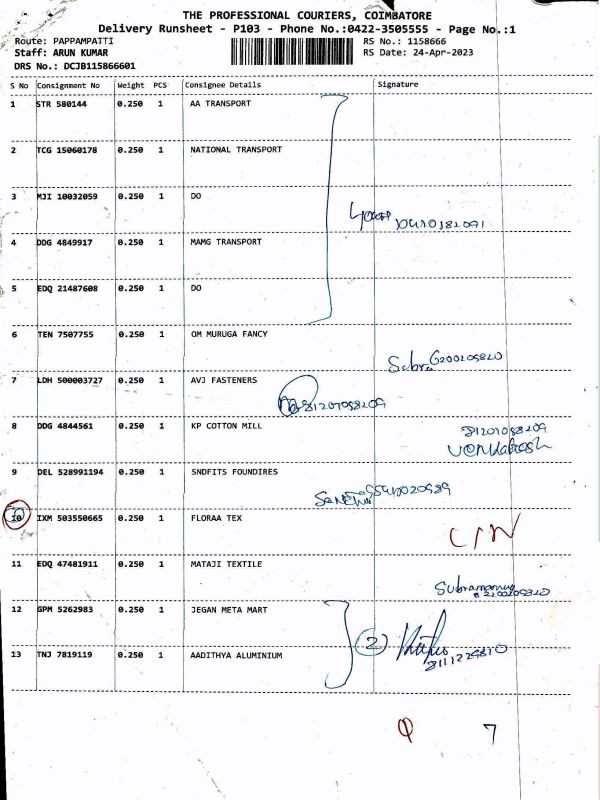 THE PROFESSIONAL COURIERS, COIMBATORE
Delivery Runsheet - P103 - Phone No.:0422-3505555 - Page No.:1
Route: PAPPAMPATTI RS No.: 1158666
Staff: ARUN KUMAR RS Date: 24-Apr-2023
DRS No.: DCJB115866601
S No Consignment No Weight PCS Consignee Details Signature
1 STR 580144 0.250 1 AA TRANSPORT
2 TCG 15060178 0.250 1 NATIONAL TRANSPORT
3 MJI 10032059 0.250 1 DO
4 DDG 4849917 0.250 1 MAMG TRANSPORT
5 EDQ 21487608 0.250 1 DO
6 TEN 7507755 0.250 1 OM MURUGA FANCY
7 LDH 500003727 0.250 1 AVJ FASTENERS
8 DDG 4844561 0.250 1 KP COTTON MILL
9 DEL 528991194 0.250 1 SNDFITS FOUNDIRES
10 IXM 503550665 0.250 1 FLORAA TEX
11 EDQ 47481911 0.250 1 MATAJI TEXTILE
12 GPM 5262983 0.250 1 JEGAN META MART
2
13 TNJ 7819119 0.250 1 AADITHYA ALUMINIUM
7